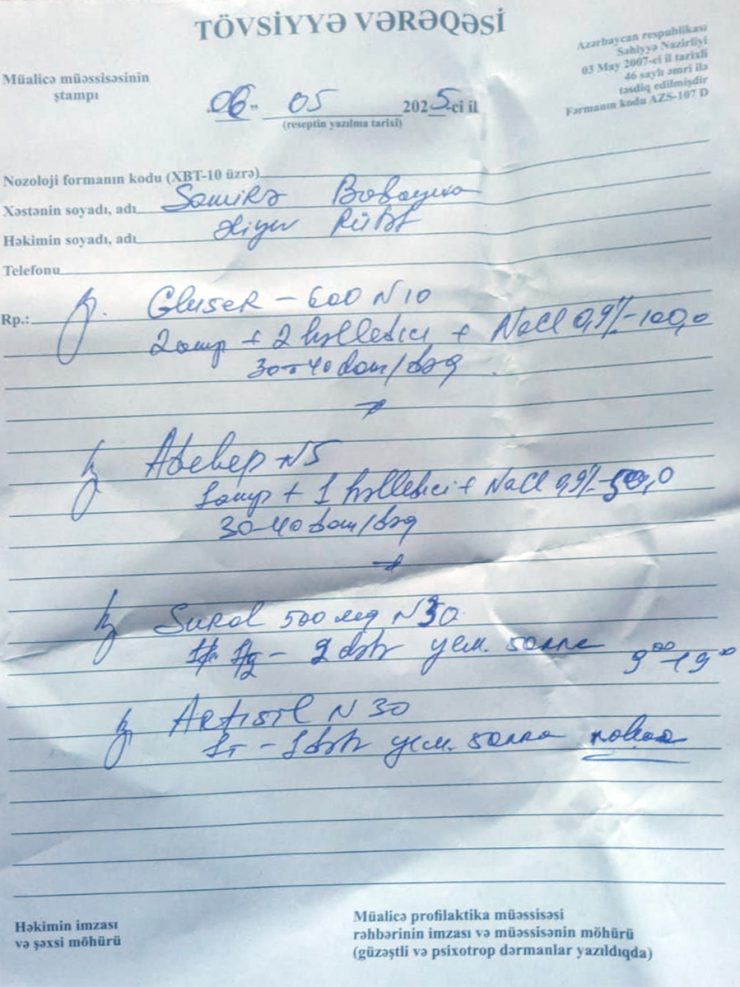 TÖVSİYYƏ VƏRƏQƏSİ
Azərbaycan respublikası
Səhiyyə Nazirliyi
03 May 2007-ci il tarixli
46 saylı əmri ilə
təsdiq edilmişdir
Fərmanın kodu AZS-107 D
Müalicə müəssisəsinin
ştampı
06 - 05 2025-ci il
(reseptin yazılma tarixi)
Nozoloji formanın kodu (XBT-10 üzrə)
Xəstənin soyadı, adı Səmirə Babayeva
Həkimin soyadı, adı
Telefonu
Rp.: Gluser - 600 N10
2 amp + 2 həlledici + NaCl 0,9% - 100,0
30-40 dam/dəq
N5
1 amp + 1 həlledici + NaCl 0,9% -
30-40 dam/dəq
Surol 500 mg N30
2 dəfə yem. sonra 9⁰⁰-19⁰⁰
Artisil N 30
1T - 1 dəfə yem. sonra
Həkimin imzası
və şəxsi möhürü
Müalicə profilaktika müəssisəsi
rəhbərinin imzası və müəssisənin möhürü
(güzəştli və psixotrop dərmanlar yazıldıqda)